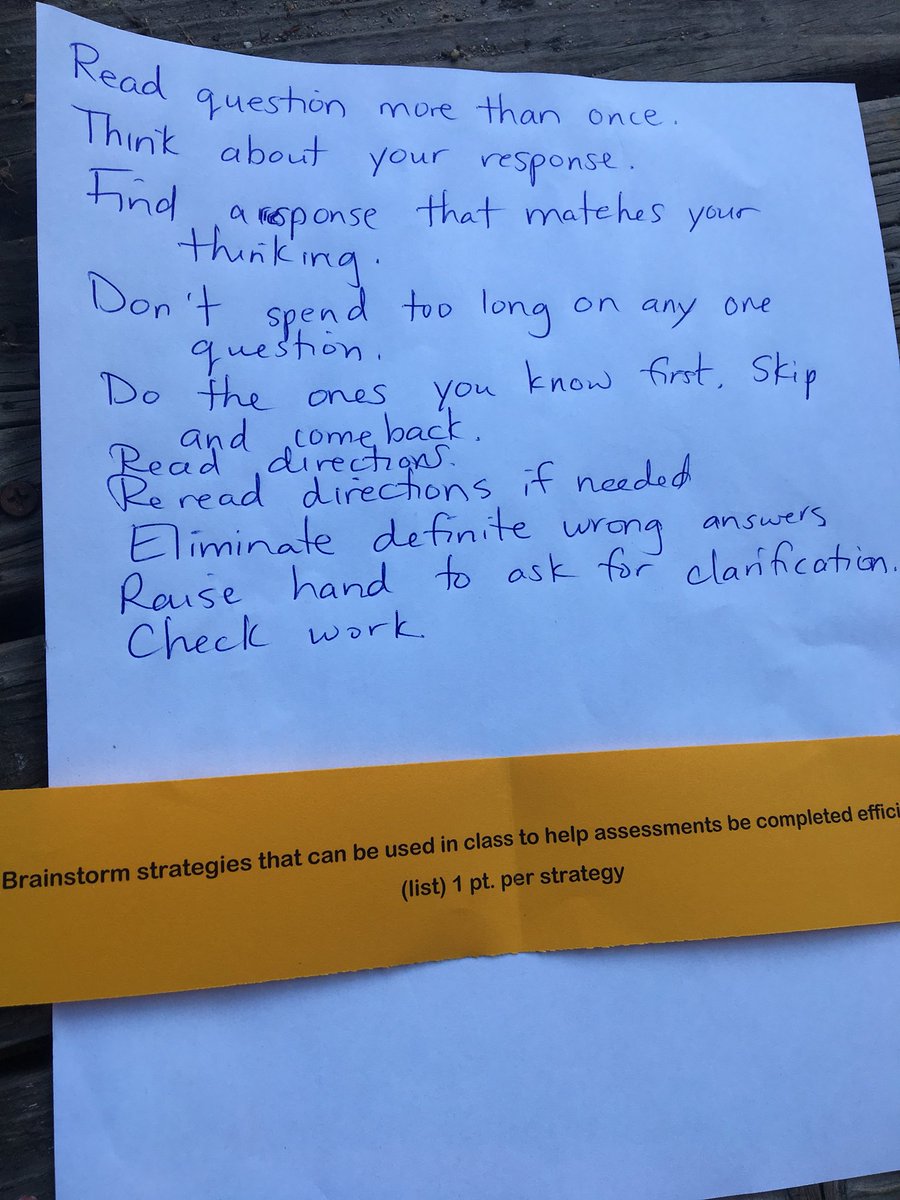 Read question more than once.
Think about your response.
Find a response that matches your
thinking.
Don't spend too long on any one
question.
Do the ones you know first. Skip
and come back.
Read directions.
Reread directions if needed
Eliminate definite wrong answers
Raise hand to ask for clarification.
Check work
Brainstorm strategies that can be used in class to help assessments be completed effici
(list) 1 pt. per strategy